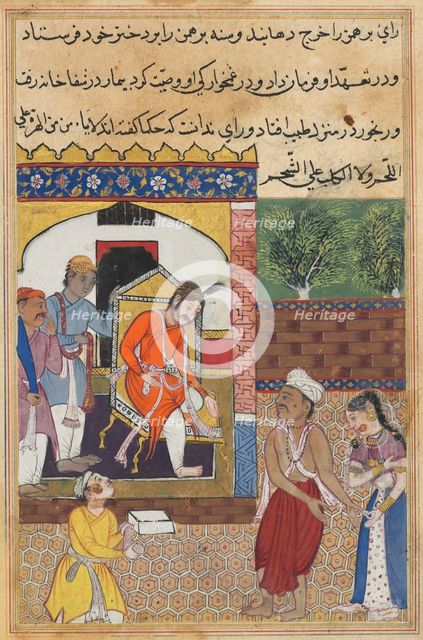 رای برهمن را خرج دهانید و سنه برهمن را بر دختر خود فرستاد
و در تعهد او فرمان داد و در غمخوارکی او وصیت کرد بیمار در شفاخانه رفت
و رنجور در منزل طبیب افتاد و رای ندانست که حکما گفته اند من الهرة علی
اللحم ولا الکلب علی الشحم
Heritage Heritage
Heritage Heritage
Heritage Heritage